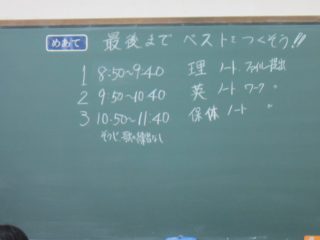 めあて 最後まで ベストをつくそう!!
1 8:50～9:40 理 ノート ファイル提出
2 9:50～10:40 英 ノート ワーク 〃
3 10:50～11:40 保体 ノート 〃